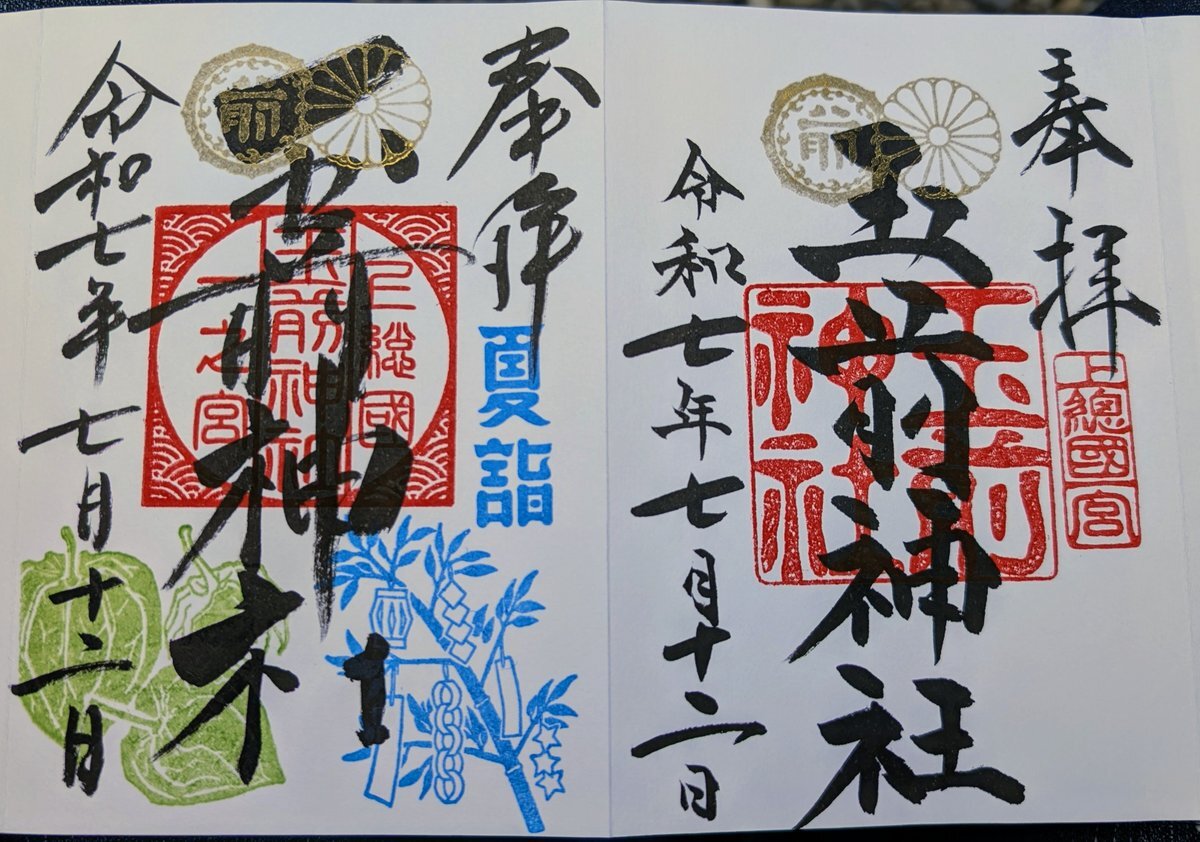 奉拝
上總國一宮
玉前神社
玉前神社
令和七年七月十二日
奉拝
夏詣
上総國
玉前神社
一之宮
玉前神社
令和七年七月十二日